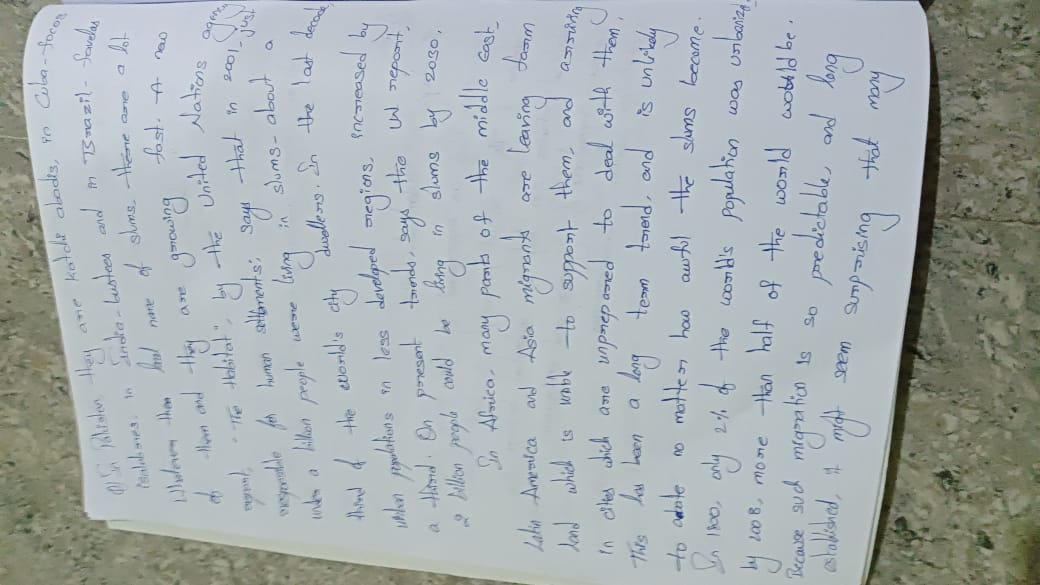 ① In Pakistan they are katchi abadis, in Cuba-focos
insalubres. in India-bustees and in Brazil-favelas
Whatever then local name of slums, there are a lot
of them and they are growing fast. A new
report, "The Habitat", by the United Nations agency
responsible for human settlments; says that in 2001, just
under a billion people were living in slums - about a
third of the world's city dwellers. In the last decade,
urban populations in less developed regions, increased by
a third. On present trends, says the UN report,
2 billion people could be living in slums by 2030.
In Africa, many parts of the middle east,
Latin America and Asia migrants are leaving farm
land which is unble to support them, and arriving
in cites which are unprepared to deal with them.
This has been a long term trend, and is unlikely
to no matter how awful the slums become.
In 1800, only 2% of the world's population was urbanized
by 2008, more than half of the world would be.
Because such migration is so predictable, and long
established, it might seem surprising that many